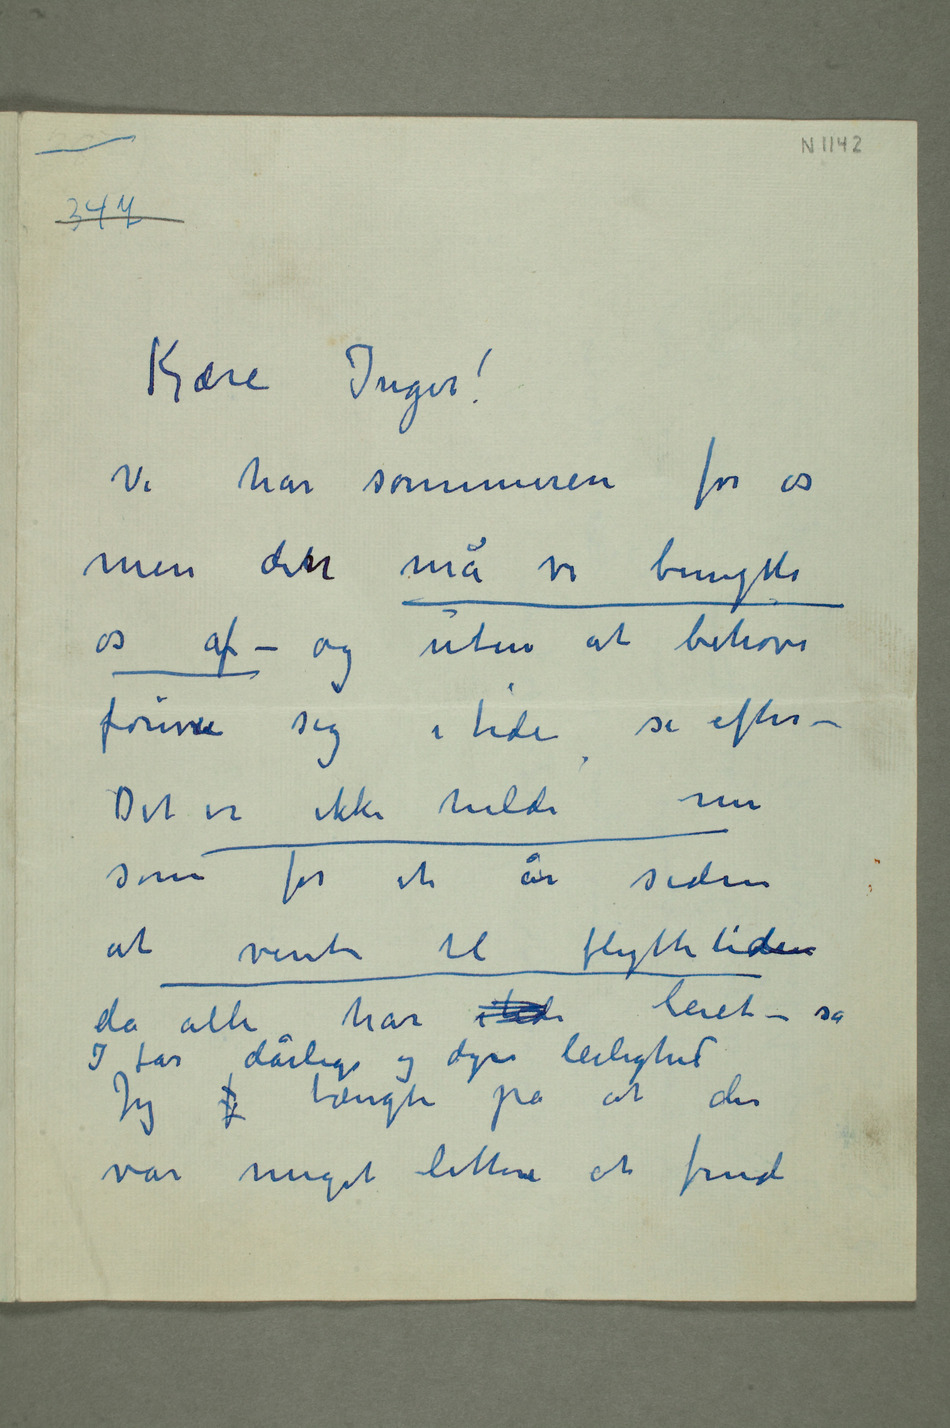 N 1142
344
Kjære Inger!
Vi har sommeren for os
men den må vi benytte
os af – og uten at behøve
forivre sig i tide se efter –
Det er ikke heldi nu
som for et år siden
at vente til flyttetiden
da alle har leiet – så
I får dårlige og dyre leilighed
Jeg tængte på at der
var meget lettere at find